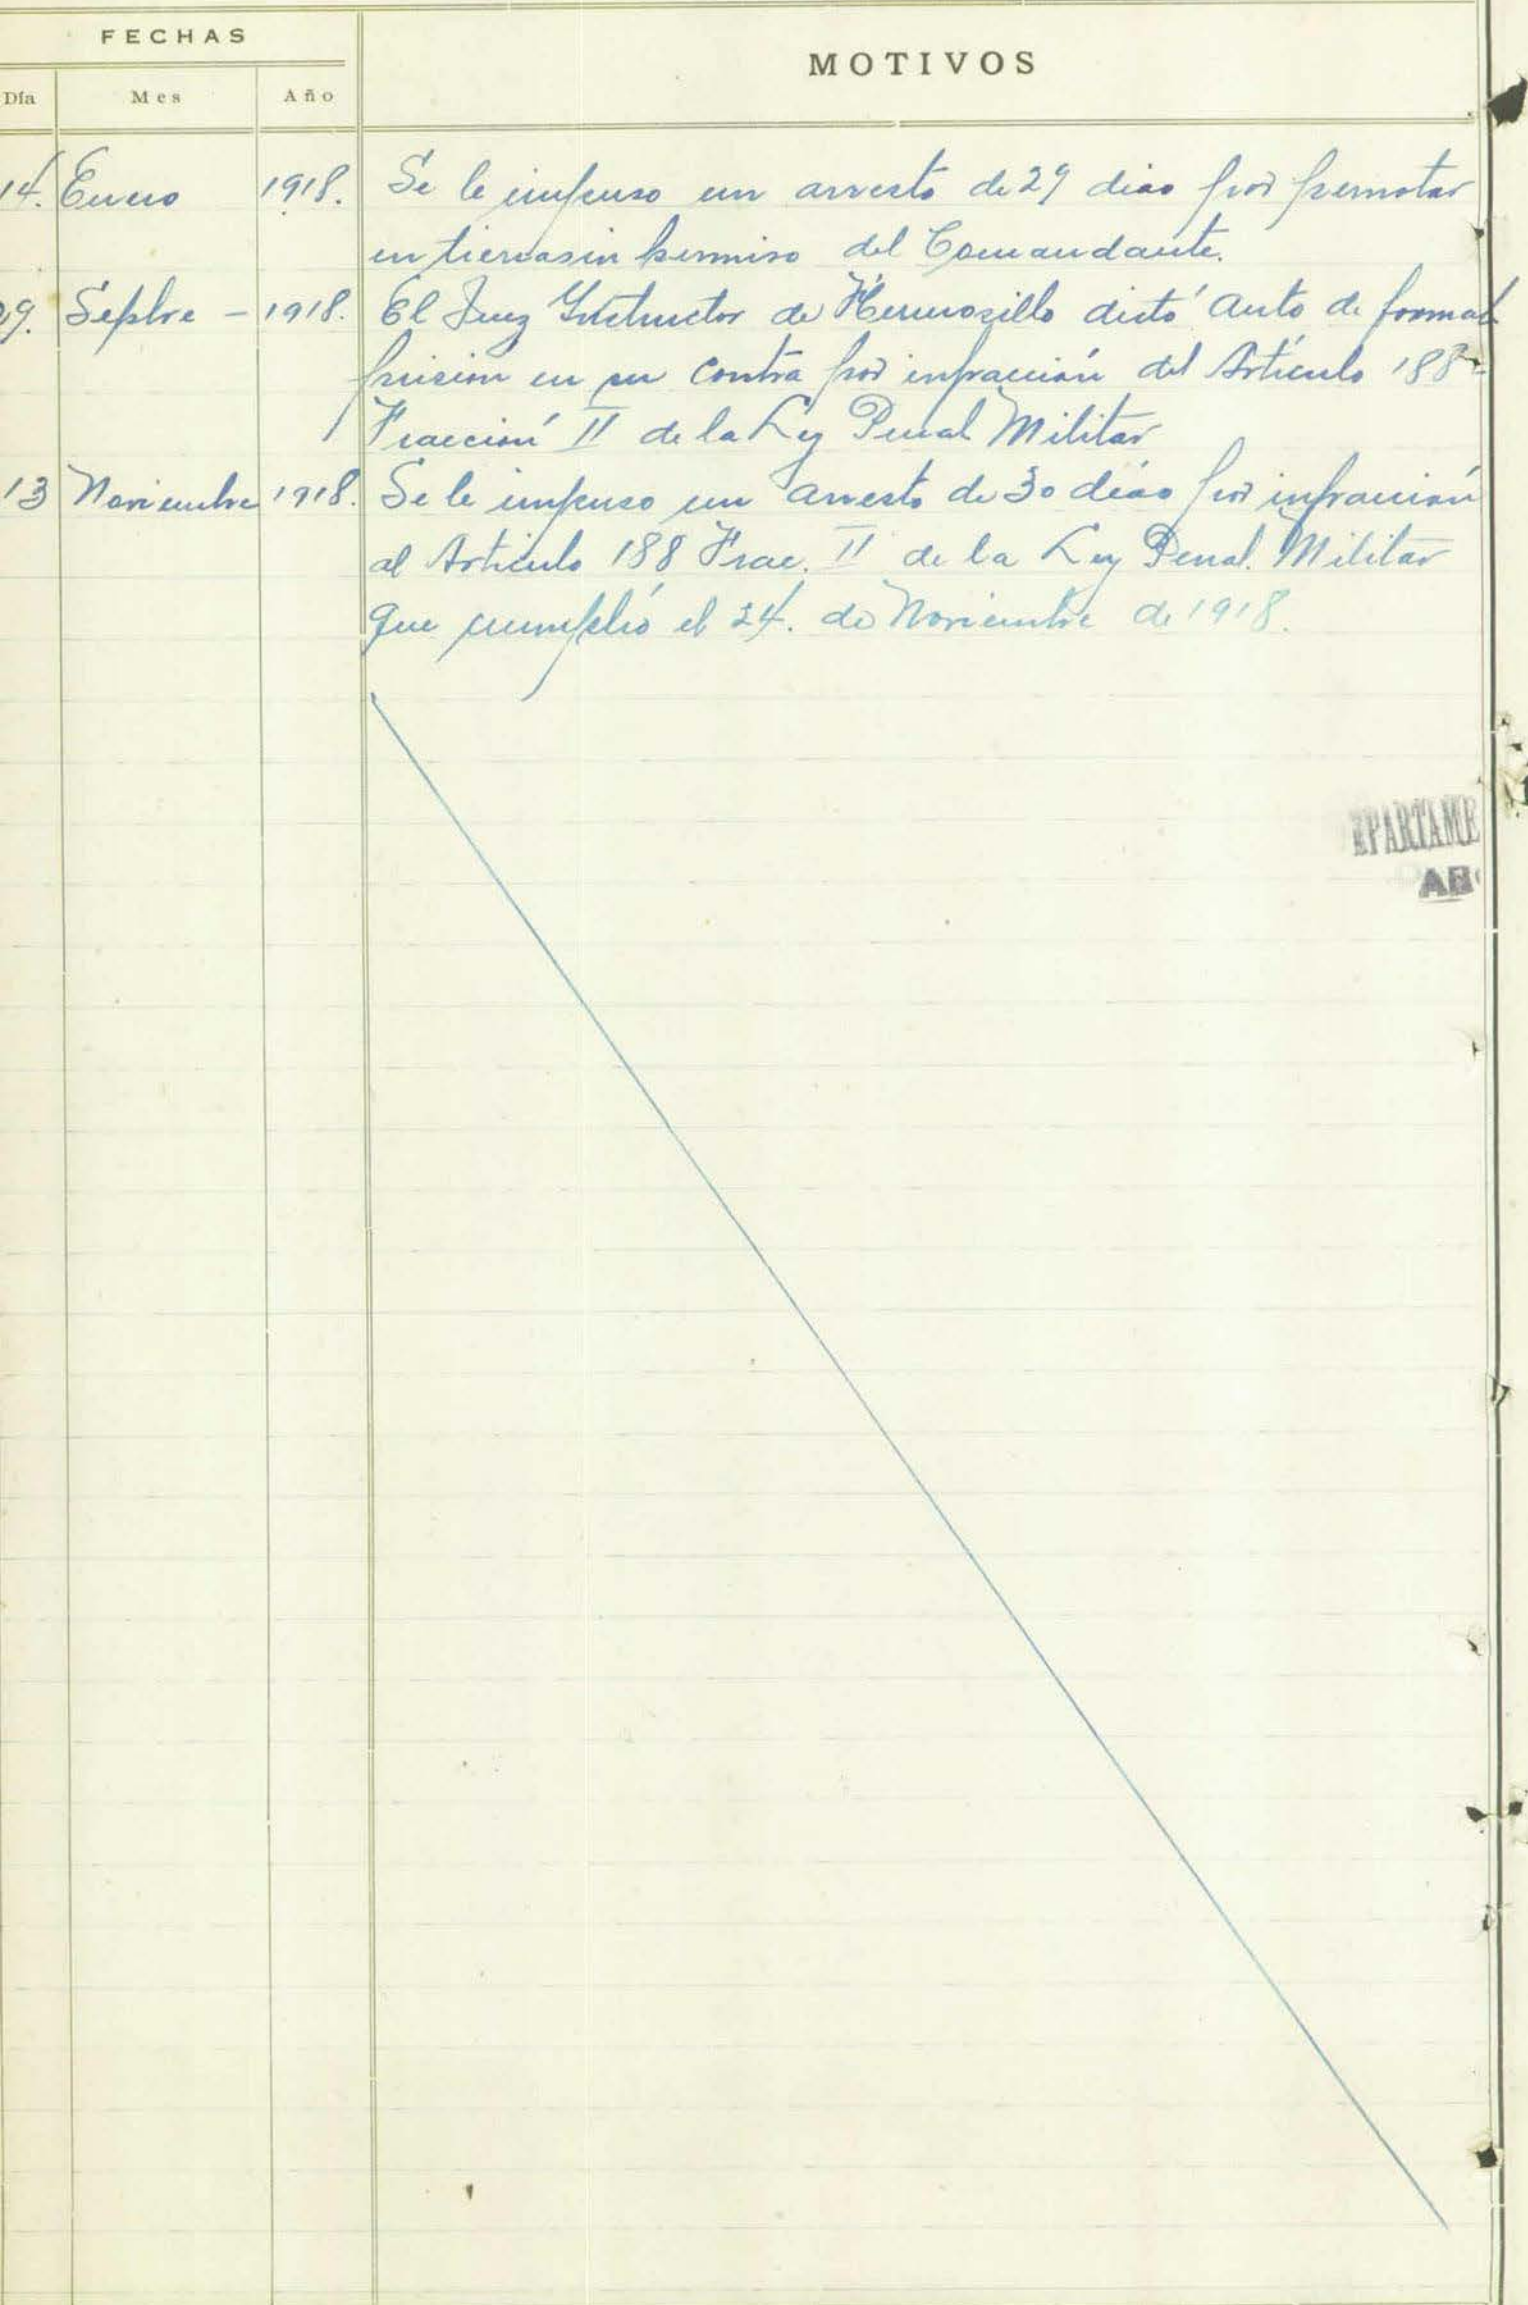 FECHAS
MOTIVOS
Día Mes Año
14. Enero 1918. Se le impuso un arresto de 29 dias por pernotar
en tierra sin permiso del Comandante.
29. Sepbre - 1918. El Juez Instructor de Hermosillo dictó auto de formal
prision en su contra por infracción del Artículo 188-
Fracción II de la Ley Penal Militar
13 Noviembre 1918. Se le impuso un arresto de 30 dias por infracción
al Articulo 188 Frac. II de la Ley Penal. Militar
que cumplió el 24. de Noviembre de 1918.
EPARTAME
AR